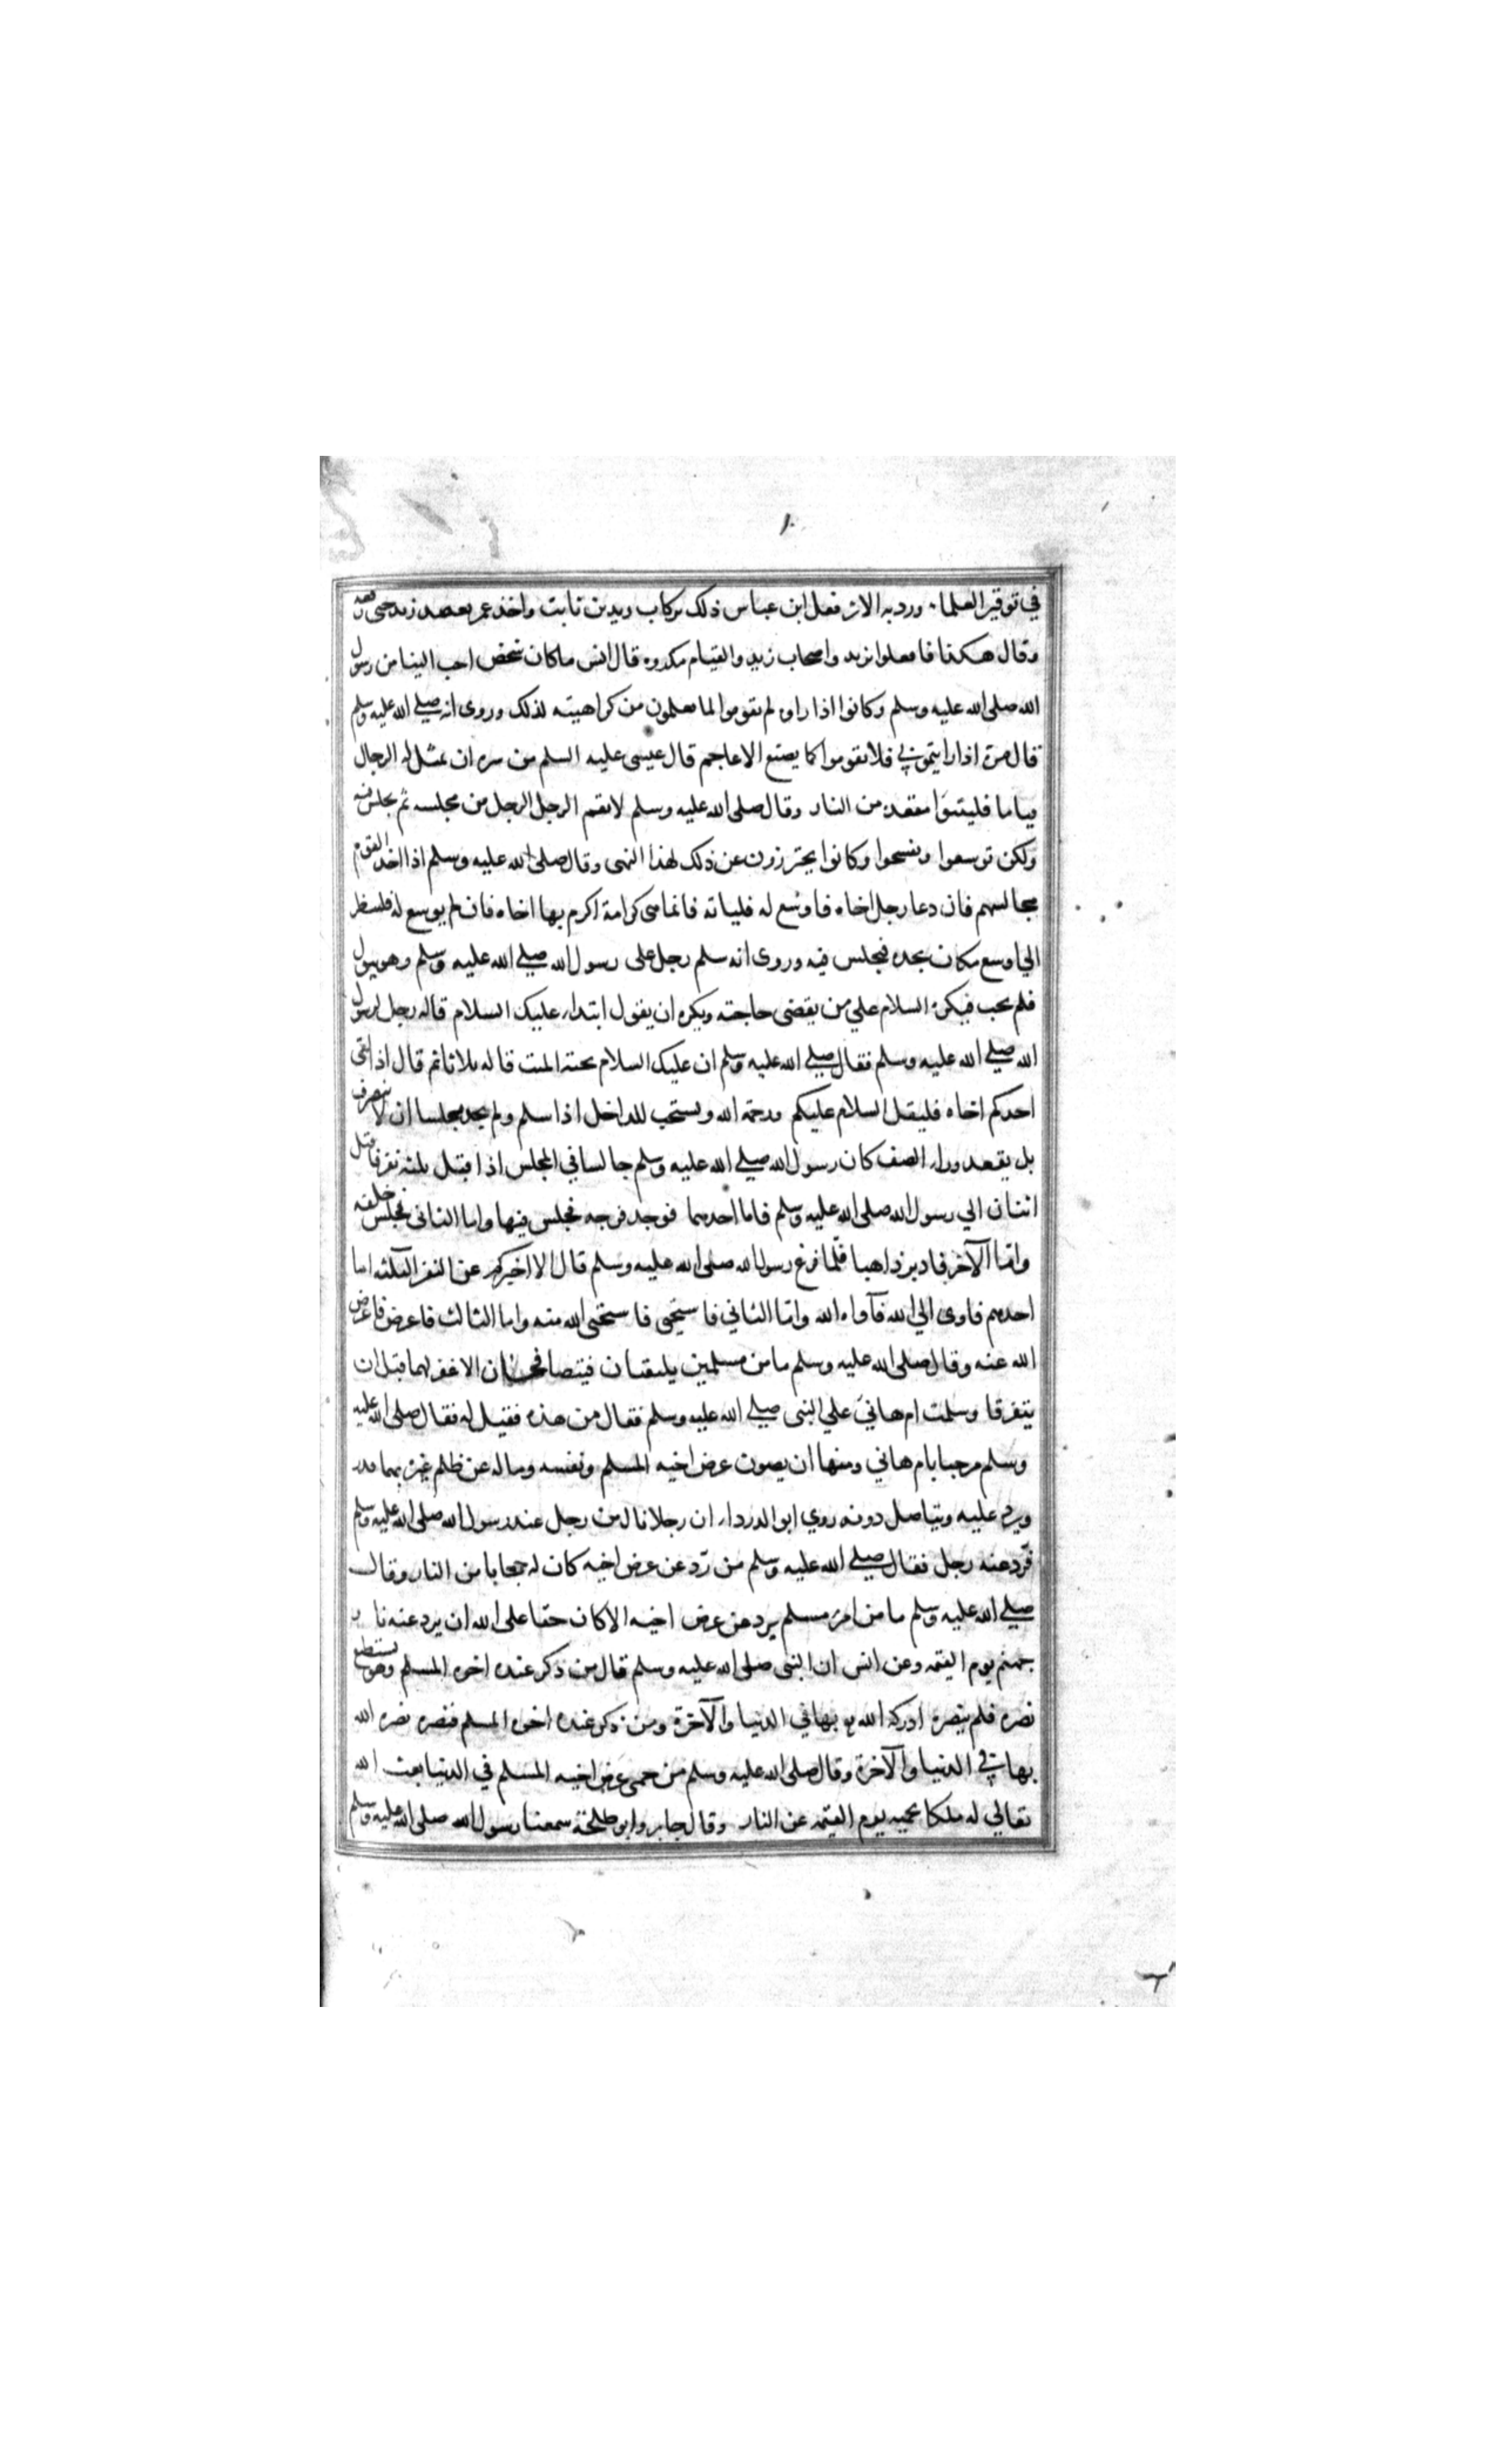 ١٠
في توقير العلماء ورد به الاثر فعل ابن عباس ذلك بركاب زيد بن ثابت واخذ عمر بعصد زيد حتى رفعه
وقال هكذا فافعلوا بزيد واصحاب زيد والقيام مكروه قال انس ما كان شخص احب الينا من رسول
الله صلى الله عليه وسلم وكانوا اذا راوه لم يقوموا لما يعلمون من كراهيته لذلك وروى انه صلى الله عليه وسلم
قال مرة اذا رايتموني فلا تقوموا كما يصنع الاعاجم قال عيسى عليه السلم من سره ان يمثل له الرجال
قياما فليتبوا مقعده من النار وقال صلى الله عليه وسلم لا يقم الرجل الرجل من مجلسه ثم يجلس فيه
ولكن توسعوا وتفسحوا وكانوا يحترزون عن ذلك لهذا النهى وقال صلى الله عليه وسلم اذا اخذ القوم
مجالسهم فان دعا رجل اخاه فاوسع له فلياته فانما هى كرامة اكرم بها اخاه فان لم يوسع له فلينظر
الي اوسع مكان يجده فيجلس فيه وروى انه سلم رجل على رسول الله صلى الله عليه وسلم وهو يبول
فلم يجب فيكره السلام علي من يقضى حاجته ويكره ان يقول ابتداء عليك السلام قاله رجل لرسول
الله صلى الله عليه وسلم فقال صلى الله عليه وسلم ان عليك السلام تحية الميت قاله ثلاثا ثم قال اذا لقى
احدكم اخاه فليقل السلام عليكم ورحمة الله ويستحب للداخل اذا سلم ولم يجد مجلسا ان لا ينصرف
بل يقعد وراء الصف كان رسول الله صلى الله عليه وسلم جالسا في المجلس اذا اقبل ثلثه نفر فاقبل
اثنان الي رسول الله صلى الله عليه وسلم فاما احدهما فوجد فرجه فجلس فيها واما الثانى فجلس خلفه
واما الآخر فادبر ذاهبا فلما فرغ رسول الله صلى الله عليه وسلم قال الا اخبركم عن النفر الثلثه اما
احدهم فاوى الي الله فآواه الله واما الثاني فاستحيى فاستحيى الله منه واما الثالث فاعرض فاعرض
الله عنه وقال صلى الله عليه وسلم ما من مسلمين يلتقيان فيتصافحان الا غفر لهما قبل ان
يتفرقا وسلمت ام هاني علي النبى صلى الله عليه وسلم فقال من هذه فقيل له فقال صلى الله عليه
وسلم مرحبا بام هاني ومنها ان يصون عرض اخيه المسلم ونفسه وماله عن ظلم غيره مهما قدر
ويرد عليه ويناضل دونه روي ابو الدرداء ان رجلا نال من رجل عند رسول الله صلى الله عليه وسلم
فرد عنه رجل فقال صلى الله عليه وسلم من رد عن عرض اخيه كان له حجابا من النار وقال
صلى الله عليه وسلم ما من امرء مسلم يرد عن عرض اخيه الا كان حقا على الله ان يرد عنه نار
جهنم يوم القيمه وعن انس ان النبى صلى الله عليه وسلم قال من ذكر عنده اخوه المسلم وهو يستطيع
نصره فلم ينصره ادركه الله بها في الدنيا والآخرة ومن ذكر عنده اخوه المسلم فنصره نصره الله
بها في الدنيا والآخرة وقال صلى الله عليه وسلم من حمى عرض اخيه المسلم في الدنيا بعث الله
تعالي له ملكا يحميه يوم القيمه عن النار وقال جابر وابو طلحة سمعنا رسول الله صلى الله عليه وسلم